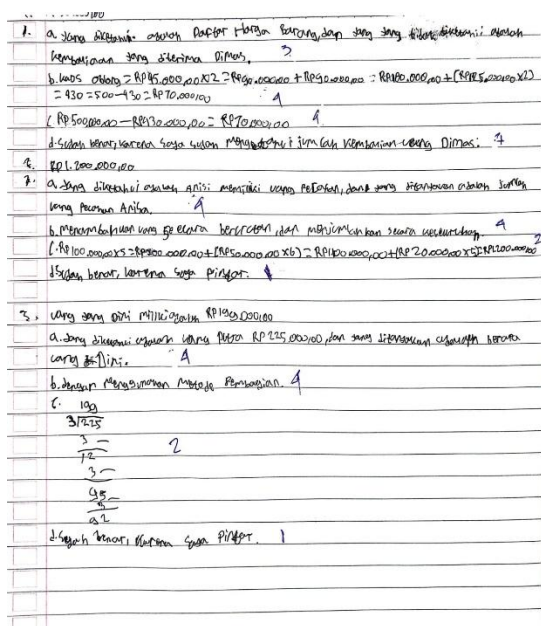 1. a. yang diketahui adalah Daftar Harga Barang, dan yang yang tidak diketahui adalah
kembalian yang diterima Dimas. 3
b. kaos oblong = RP45.000,00 x2 = RP90.000,00 + RP90.000,00 = RP180.000,00 + (RP125.000,00 x2)
= 430 = 500 - 430 = RP70.000,00 4
c RP500.000,00 - RP430.000,00 = RP70.000,00 4
d. Sudah benar, karena saya sudah jumlah kembalian uang Dimas. 4
2. RP1.200.000,00
2. a. yang diketahui adalah Anisi memiliki uang Pecahan, dan yang ditanyakan adalah jumlah
uang Pecahan Anisa. 4
b. menambahkan uang secara berurutan, dan menjumlahkan secara keseluruhan. 4
c. RP100.000,00 x5 = RP500.000,00 + (RP50.000,00 x6) = + (RP20.000,00 RP1.200.000,00 2
d Sudah benar, karena saya Pintar. 1
3. uang yang Dini miliki adalah RP199.000,00
a. yang diketahui adalah uang Putra RP225.000,00, dan yang ditanyakan adalah berapa
uang Dini. 4
b. dengan menggunakan metode Pembagian. 4
c. 199
3/225
3 -
12 2
3 -
95 -
3
92
d. Sudah benar, karena saya Pintar. 1